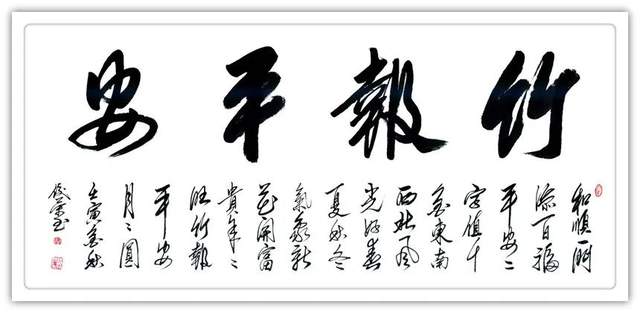 竹報平安
和順一門
添百福
平安二
字值千
金東南
西北風
光好春
夏秋冬
氣象新
花開富
貴年々
旺竹報
平安
月々圓
壬寅金秋